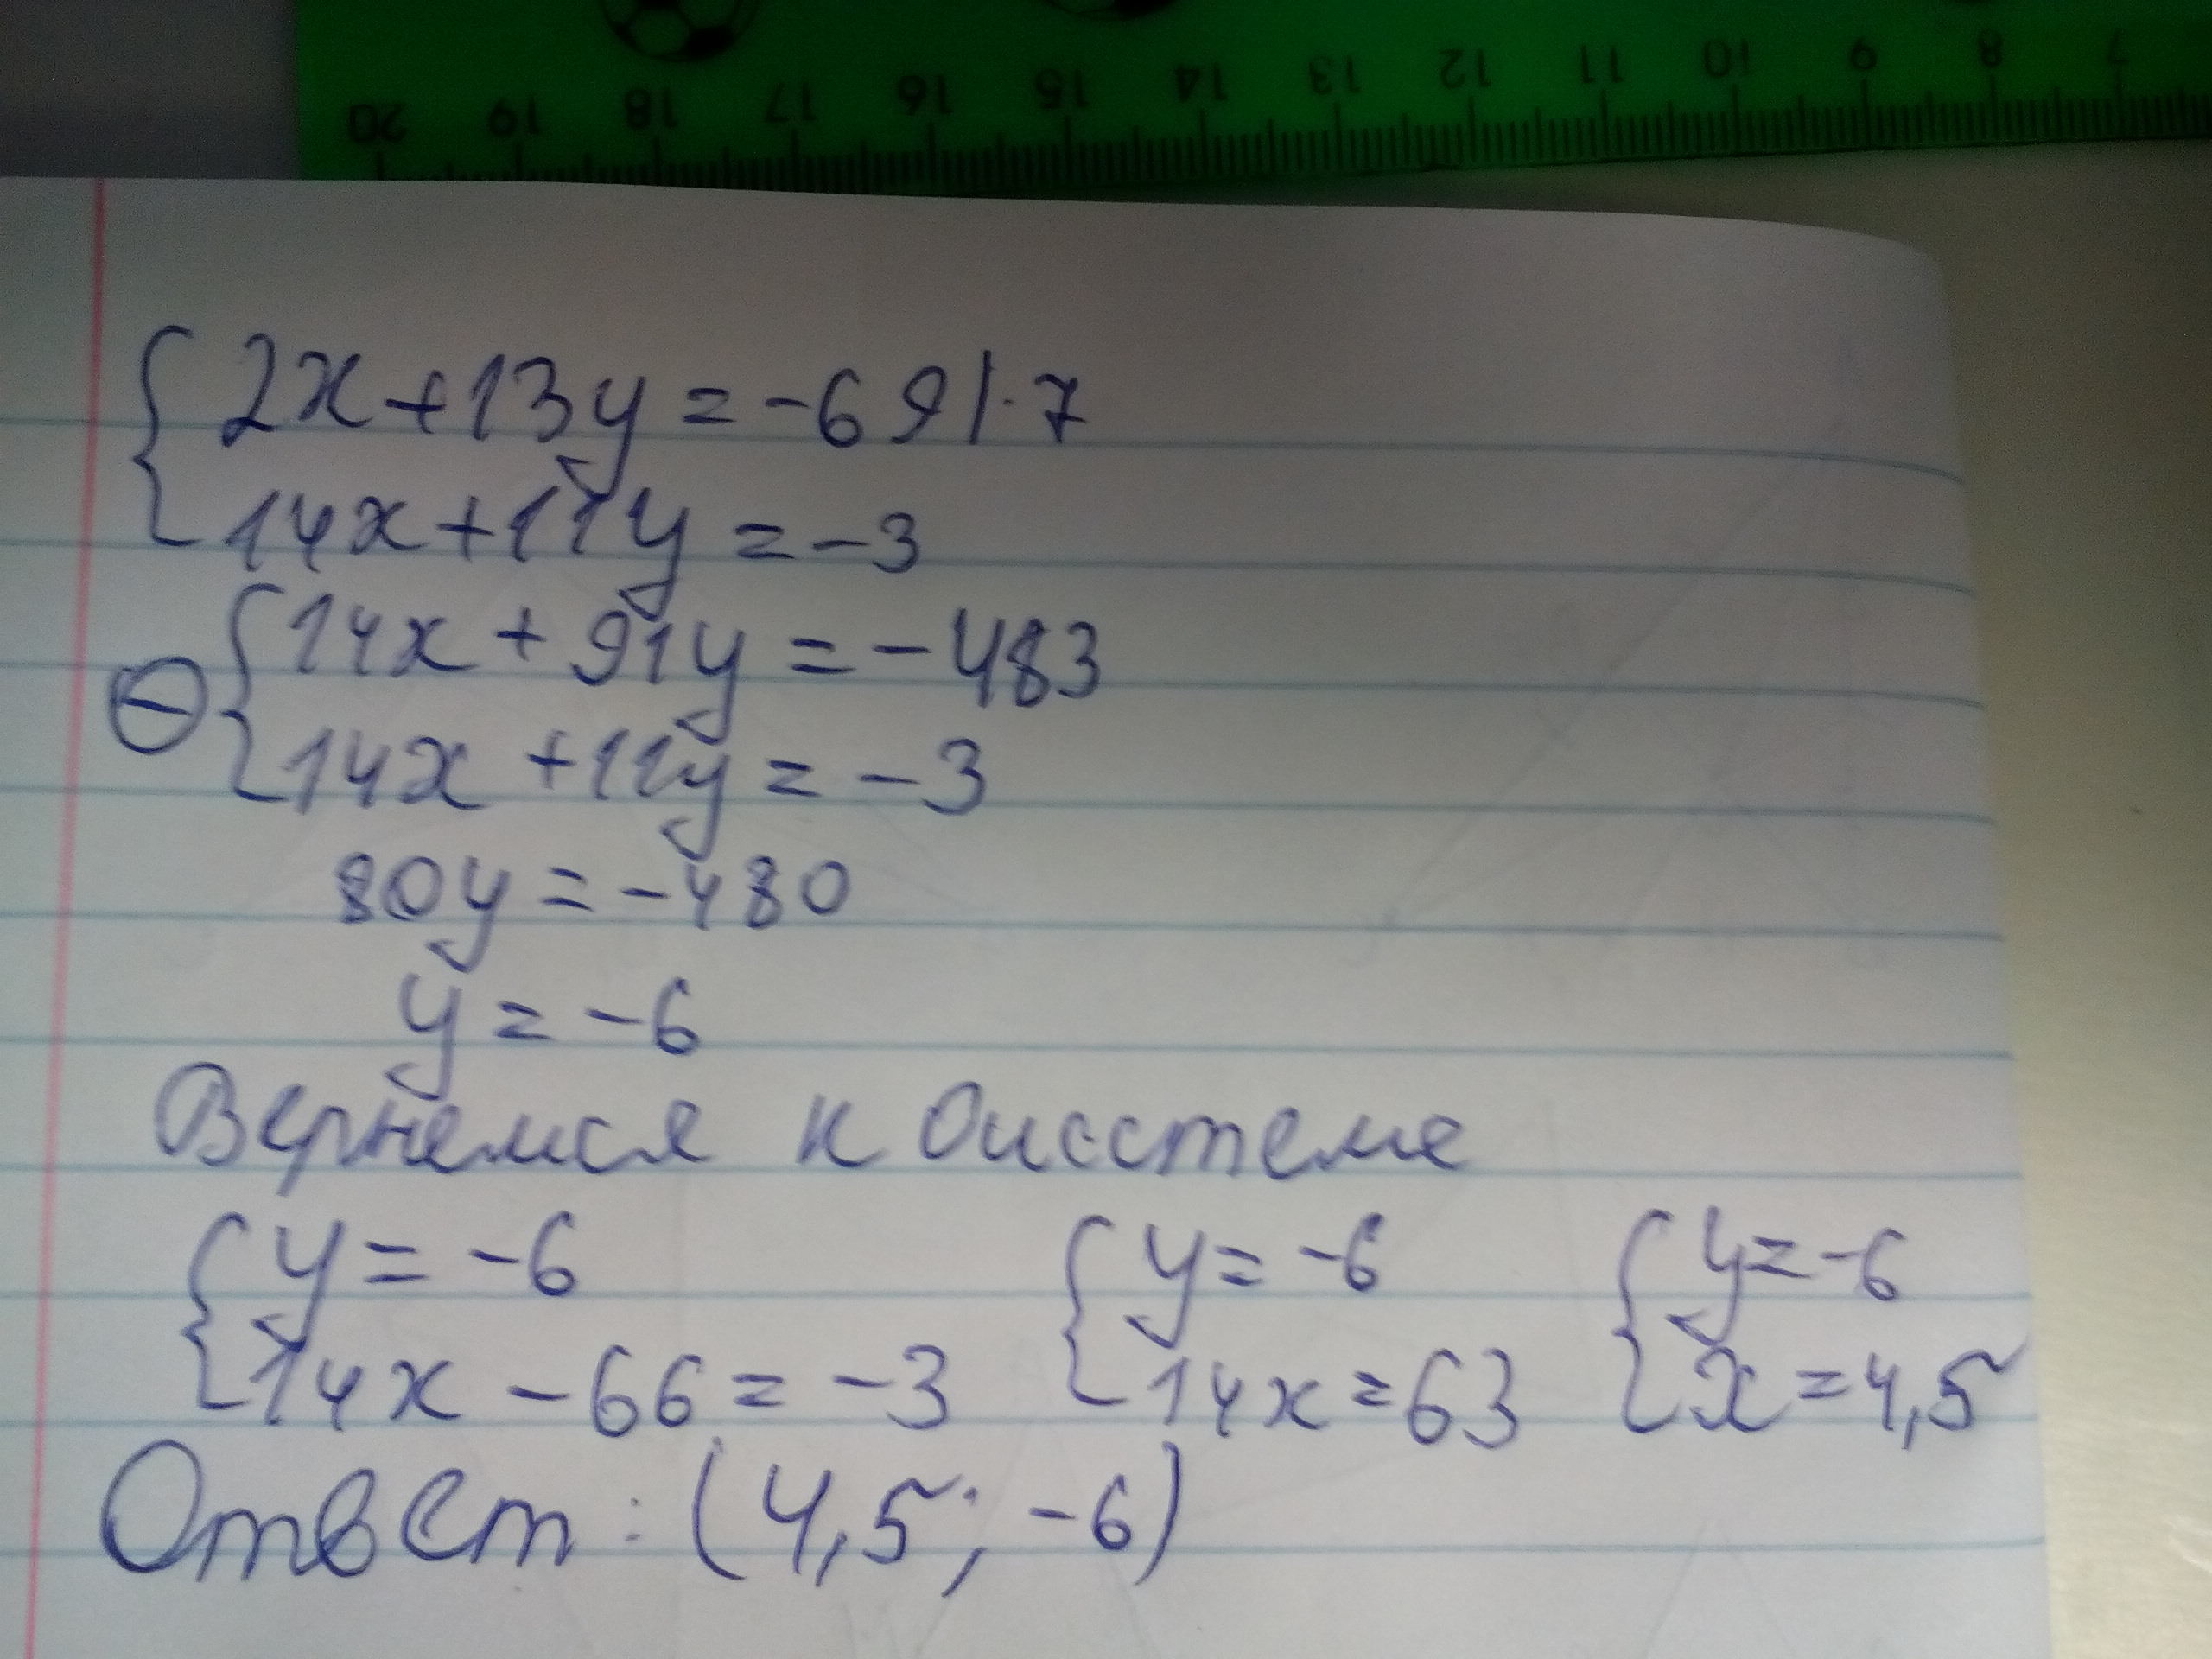 20 19 18 17 16 15 14 13 12 11 10 9 8 7
2x+13y=-69|·7
14x+11y=-3
14x+91y=-483
⊖
14x+11y=-3
80y=-480
y=-6
Вернемся к сисстеме
{y=-6 {y=-6 {y=-6
14x-66=-3 14x=63 x=4,5
Ответ: (4,5; -6)